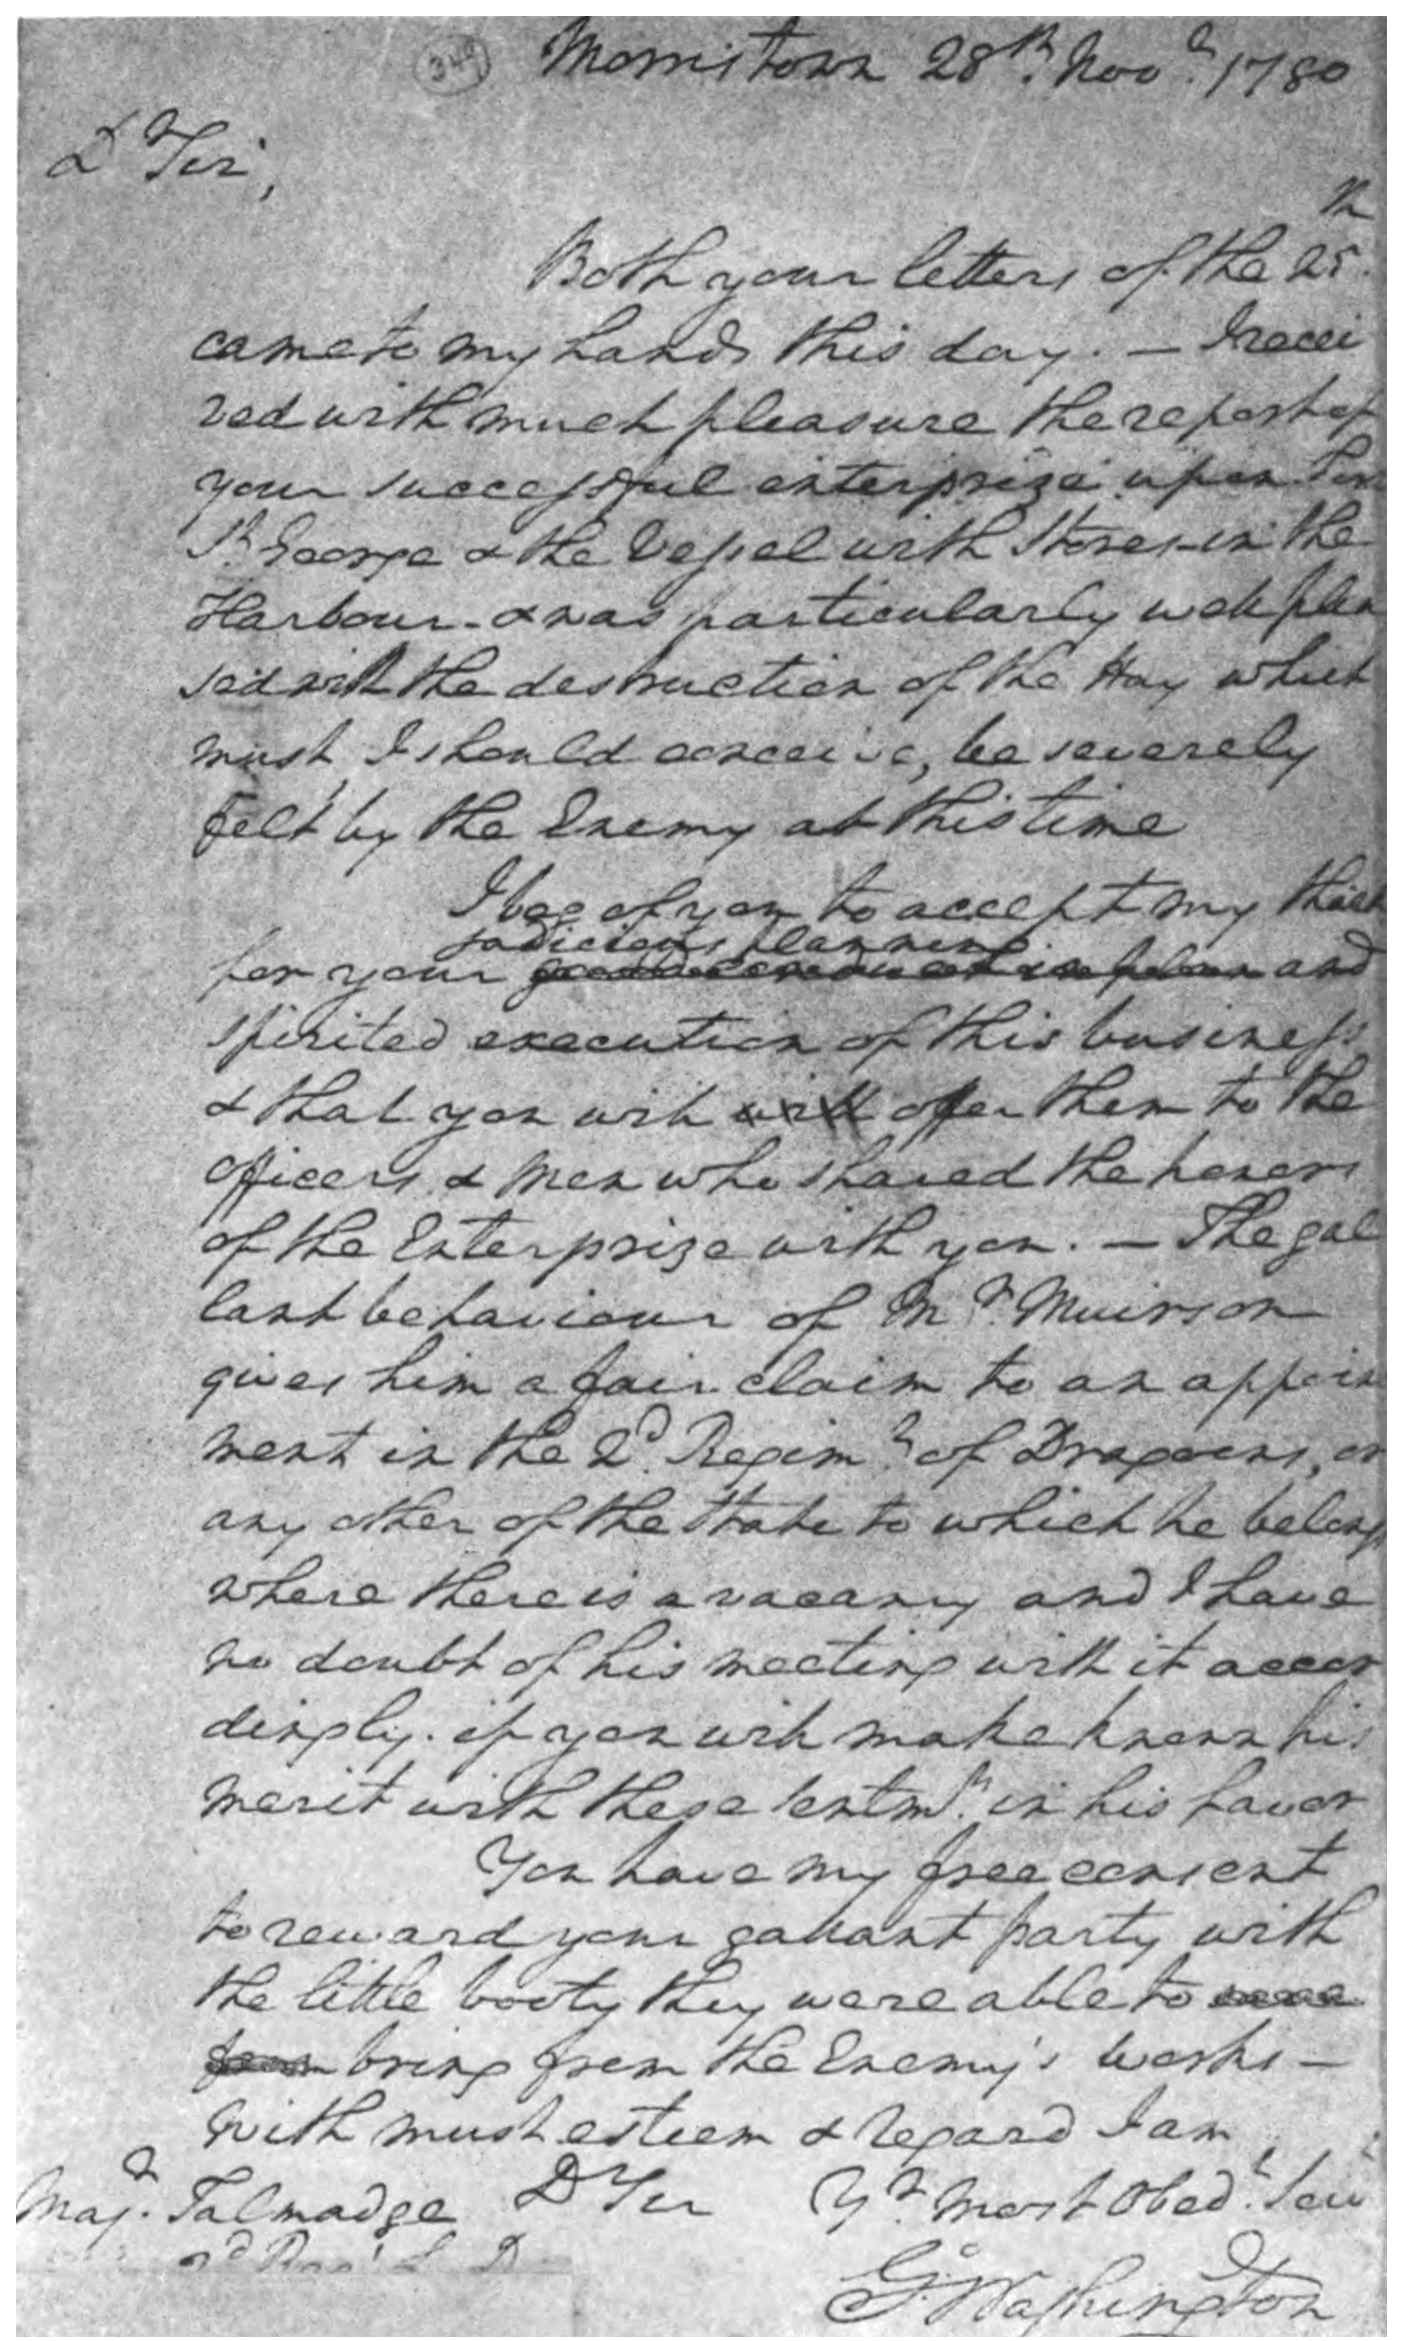 349
Morristown 28th. Novr. 1780
Dr Sir,
th
Both your letters of the 25.
came to my hands this day. — I recei
ved with much pleasure the report of
your successful enterprize upon Fort
St. George & the Vessel with Stores in the
Harbour - & was particularly well plea
sed with the destruction of the Hay which
must, I should conceive, be severely
felt by the Enemy at this time
I beg of you to accept my thank
judicious planning
for your good conduct in plan and
spirited execution of this business
& that you will will offer them to the
officers & men who shared the honors
of the Enterprize with you. — The gal
lant behaviour of Mr. Muirson
gives him a fair claim to an appoin
ment in the 2d. Regimt. of Dragoons, or
any other of the State to which he belongs
where there is a vacancy and I have
no doubt of his meeting with it accor
dingly. if you will make known his
merit with these sentmts. in his favor
You have my free consent
to reward your gallant party with
the little booty they were able to
from bring from the Enemy's works —
With much esteem & regard I am
Majr. Talmadge Dr Sir Yr. Most Obedt. Serv
2d Regt L D
G: Washington